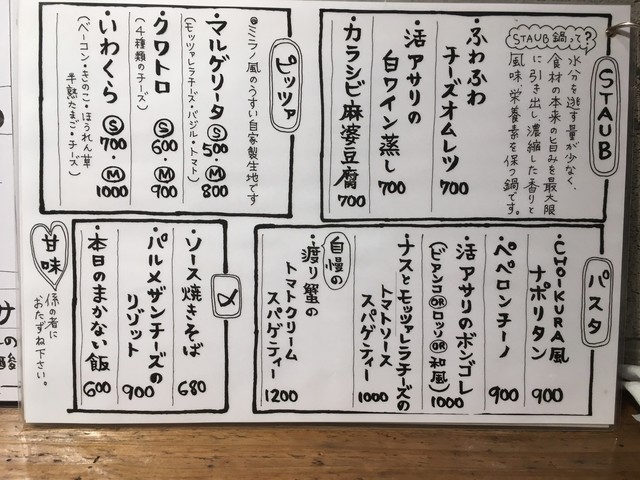 STAUB
STAUB鍋って?
水分を逃す量が少なく、
食材の本来の旨みを最大限
に引き出し、濃縮した香りと
風味、栄養素を保つ鍋です。
・ふわふわ
チーズオムレツ 700
・活アサリの
白ワイン蒸し 700
・カラシビ麻婆豆腐 700
ピッツァ
@ミラノ風のうすい自家製生地です
・マルゲリータ Ⓢ500・Ⓜ800
(モッツァレラチーズ・バジル・トマト)
・クワトロ Ⓢ600・Ⓜ900
(4種類のチーズ)
・いわくら Ⓢ700・Ⓜ1000
(ベーコン・きのこ・ほうれん草
半熟たまご・チーズ)
パスタ
・CHOIKURA風
ナポリタン 900
・ペペロンチーノ 900
・活アサリのボンゴレ 1000
(ビアンコORロッソOR和風)
・ナスとモッツァレラチーズの
トマトソース
スパゲティー 1000
自慢の
・渡り蟹の
トマトクリーム
スパゲティー 1200
〆
・ソース焼きそば 680
・パルメザンチーズの
リゾット 900
・本日のまかない飯 600
甘味
係の者に
おたずね下さい。
サ
の
酸